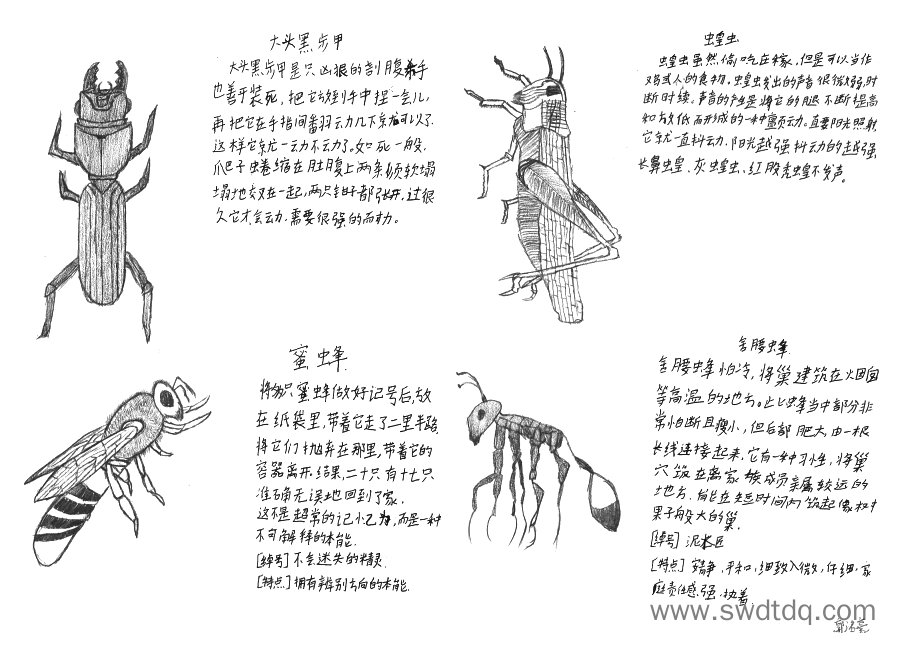 大头黑步甲
大头黑步甲是只凶狠的刽腹手
也善于装死，把它放到手中捏一会儿，
再把它在手指间翻动几下就可以了
这样它就一动不动了。如死一般，
爪巴子卷缩在肚腹上两条须软塌
塌地交叉在一起，两只钳子都张开，过很
久它才会动，需要很强的耐力。
蝗虫
蝗虫虽然偷吃庄稼，但是可以当作
鸡或人的食物。蝗虫发出的声音很微弱，时
断时续。声音的产生是将它的腿不断提高
和放低而形成的一种震动。直要阳光照射，
它就一直抖动，阳光越强抖动的越强，
长鼻蝗、灰蝗虫、红股秃蝗不发声。
蜜蜂
将只蜜蜂做好记号后，放
在纸袋里，带着它走了二里半路
将它们抛弃在那里，带着它的
容器离开，结果，二十只有十七只
准确无误地回到了家。
这不是超常的记忆力，而是一种
不可解释的本能。
[绰号] 不会迷失的精灵
[特点] 拥有辨别方向的本能。
舍腰蜂
舍腰蜂怕冷，将巢建筑在火田囱
等高温的地方。此蜂当中部分非
常怕断且瘦小，但后部肥大，由一根
长线连接起来，它有一种习性，将巢
穴筑在离家族成员亲属较远的
地方，能在短时间内筑起像
果子般大的巢。
[绰号] 泥水匠
[特点] 安静，平和，细致入微，仔细，家
庭责任感强，执着
www.swdtdq.com